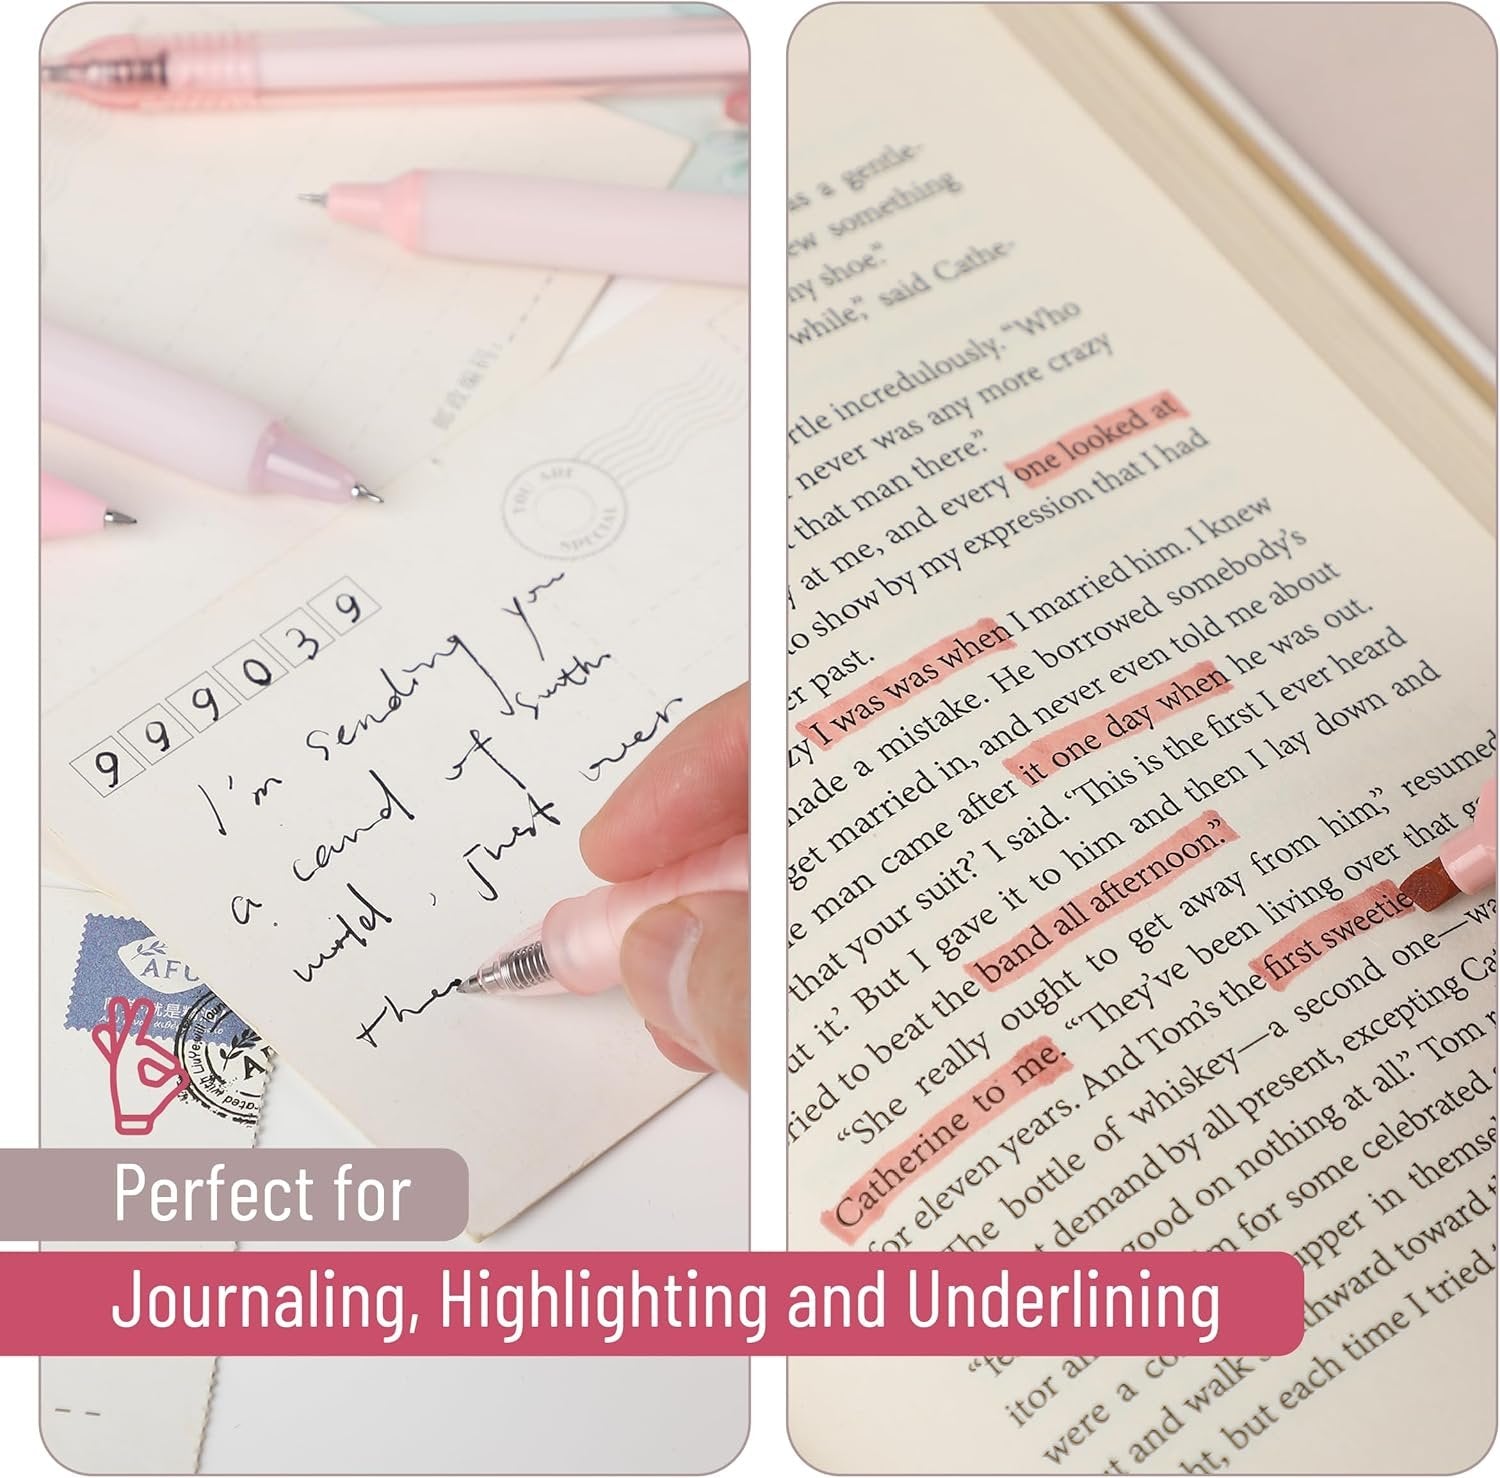 YOU ARE
SPECIAL
999039
I'm sending you
a card of
wild, Just over
AFU
Perfect for
Journaling, Highlighting and Underlining
as a gentle-
something
my shoe."
while," said Cathe-
incredulously. "Who
never was any more crazy
that man there."
at me, and every one looked at
to show by my expression that I had
past.
I was was when I married him. I knew
made a mistake. He borrowed somebody's
get married in, and never even told me about
man came after it one day when he was out.
that your suit?' I said. 'This is the first I ever heard
it.' But I gave it to him and then I lay down and
to beat the band all afternoon."
"She really ought to get away from him," resumed
Catherine to me. "They've been living over that
for eleven years. And Tom's the first sweetie
The bottle of whiskey—a second one—
demand by all present, excepting
good on nothing at all." Tom
for some celebrated
upper in
toward
were a
and walk
but each time I tried